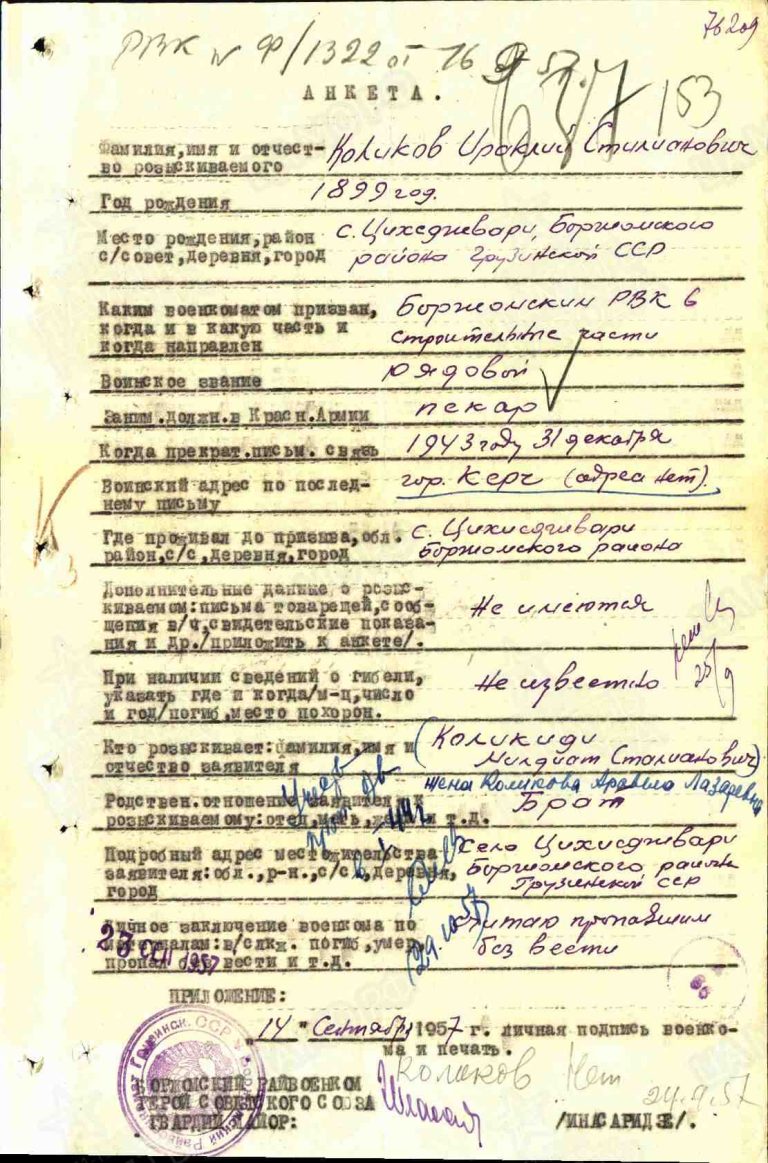 76209
РВК N Ф/1322 от 16
153
АНКЕТА.
Фамилия,имя и отчест- Коликов Ираклий Стилианович
во розыскиваемого
Год рождения 1899 год.
Место рождения,район с. Цихеджвари, Боржомского
с/совет,деревня,город района Грузинской ССР
Каким военкоматом призван, Боржомским РВК в
когда и в какую часть и строительные части
когда направлен
Воинское звание рядовой
Заним.должн.в Красн.Армии пекар
Когда прекрат.письм. связь 1943 году 31 декабря
Воинский адрес по послед- гор. Керч (адреса нет).
нему письму
Где проживал до призыва,обл. с. Цихисджвари
район,с/с,деревня,город Боржомского района
Дополнительные данные о розыс-
киваемом:письма товарещей,сооб- Не имеются
щения в/ч,свидетельские показа-
ния и др./приложить к анкете/.
25/9
При наличии сведений о гибели, Не известно
указать где и когда/м-ц,число
и год/погиб,место похорон.
Кто розыскивает:фамилия,имя и (Коликиди
отчество заявителя Милдиат Сталианович)
жена Коликова Лазаревна
Родствен.отношение заявителя к Брат
розыскиваемому:отец,мать,жена и т.д.
Подробный адрес местожительства Село Цихисджвари
заявителя:обл.,р-н.,с/с,деревня, Боржомского района
город Грузинской сср
Личное заключение военкома по Считаю пропавшим
материалам:в/служ. погиб,умер, без вести
пропал без вести и т.д.
23 1957
ПРИЛОЖЕНИЕ:
"14" Сентября 1957 г. личная подпись военко-
ма и печать.
Коликов Нет
24.9.57
БОРЖОМСКИЙ РАЙВОЕНКОМ
ГЕРОЙ СОВЕТСКОГО СОЮЗА
ГВАРДИИ МАЙОР: /ИНАСАРИДЗЕ/.